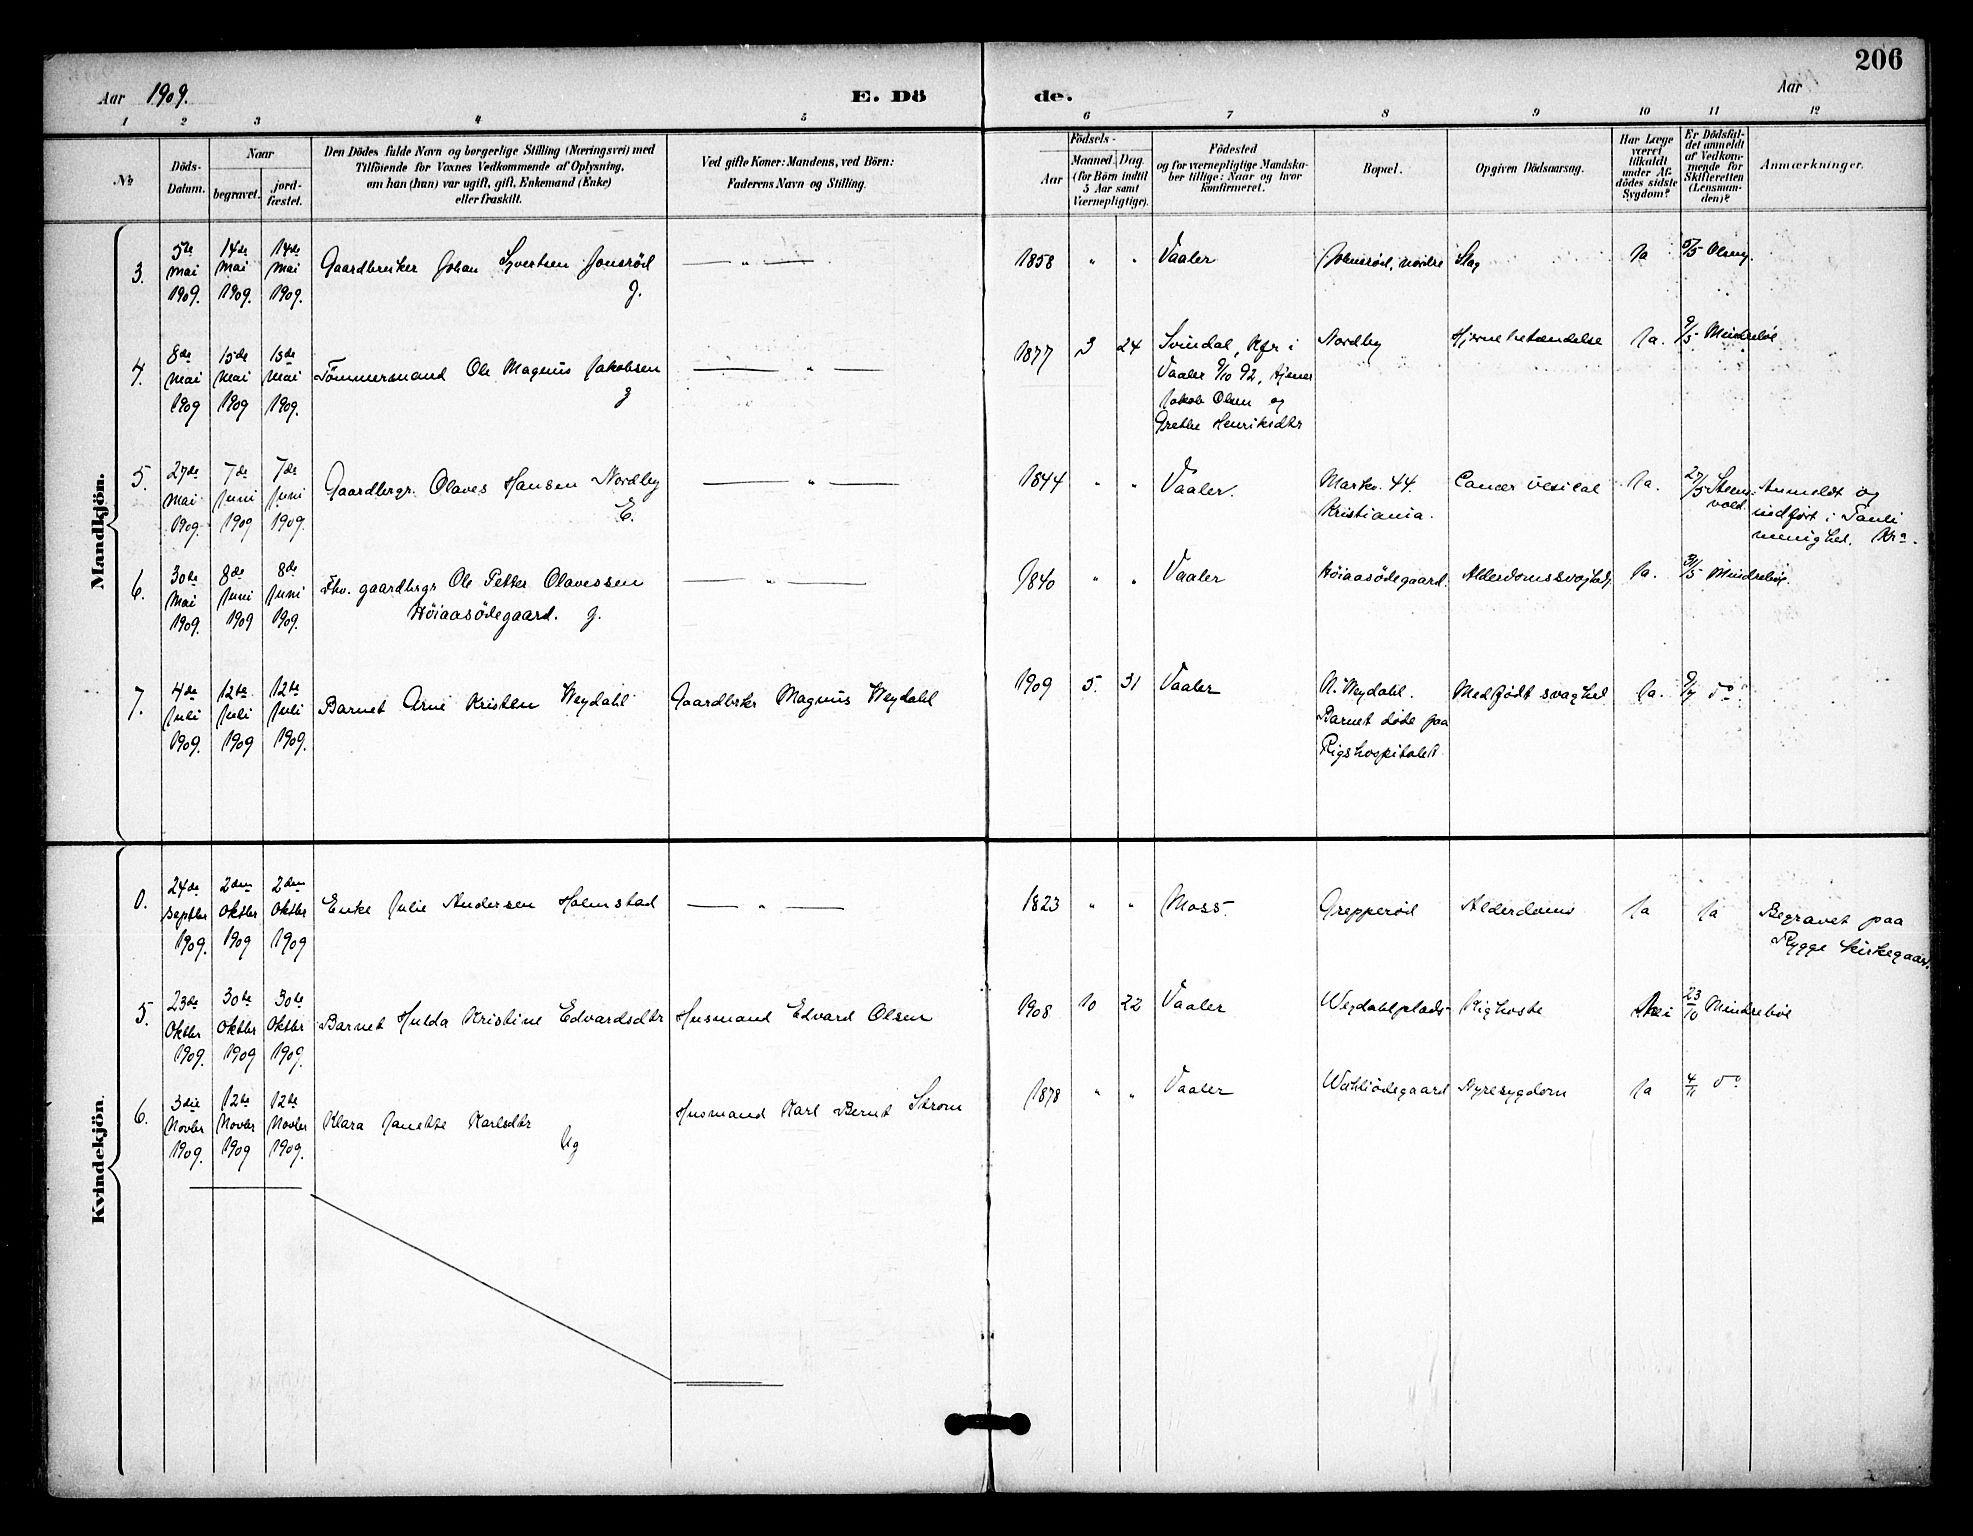 206
Aar 1909. E. Dö de. Aar
1 2 3 4 5 6 7 8 9 10 11 12
No
Döds-Datum.
Naar
begravet.
jord-fæstet.
Den Dödes fulde Navn og borgerlige Stilling (Næringsvei) med
Tilföiende for Voxnes Vedkommende af Oplysning,
om han (hun) var ugift, gift, Enkemand (Enke)
eller fraskilt.
Ved gifte Koner: Mandens, ved Börn:
Faderens Navn og Stilling.
Födsels-
Aar
Maaned. Dag.
(for Börn indtil
5 Aar samt
Værnepligtige).
Födested
og for værnepligtige Mandska-
ber tillige: Naar og hvor
konfirmeret.
Bopæl.
Opgiven Dödsaarsag.
Har Læge
været
tilkaldt
under Af-
dödes sidste
Sygdom?
Er Dödsfal-
det anmeldt
af Vedkom-
mende for
Skifteretten
(Lensman-
den)?
Anmærkninger.
Mandkjön.
3.
5te mai 1909.
14de mai 1909.
14de mai 1909.
Gaardbruker Johan Syvertsen Jonsröd
g.
— " —
1858 " "
Vaaler
Johnsröd, nordre
Slag
Ja
5/5 Olsen
4.
8de mai 1909
15de mai 1909
15de mai 1909.
Tömmermand Ole Magnus Jakobsen
g
— " —
1877 3 24
Svindal, Kfr i
Vaaler 9/10 92,
Jakob Olsen og
Grethe Henriksdtr
Nordby
Hjernebetændelse
Ja.
9/5 Mindreböe
5.
27de mai 1909.
7de juni 1909
7de juni 1909.
Gaardbrgr. Olaves Hansen Nordby
E.
— " —
1844 " "
Vaaler.
Markv. 44.
Kristiania.
Cancer vesical
Ja.
27/5 Steens-
vold.
Anmeldt og
indført i Pauli
menighet. Kra.
6.
30de mai 1909.
8de juni 1909
8de juni 1909.
Fhv. gaardbrgr Ole Petter Olavessen
Höiaasödegaard. g.
— " —
1840 " "
Vaaler
Höiaasödegaard.
Alderdomssvaghet
Ja.
31/5 Mindreböe.
7.
4de juli 1909.
12te juli 1909
12te juli 1909.
Barnet Arne Kristen Weydahl
Gaardbrker Magnus Weydahl
1909 5. 31
Vaaler
N. Weydahl.
Barnet döde paa
Rigshospitalet
Medfödt svaghet
Ja.
9/7 do
Kvindekjön.
0.
24de septbr 1909.
2den oktbr 1909
2den oktbr 1909
Enke Julie Andersen Holmstad
— " —
1823 " "
Moss.
Grepperöd
Alderdoms
Ja
Ja
Begravet paa
Rygge kirkegaard.
5.
23de oktbr 1909.
30te oktbr 1909
30te oktbr 1909.
Barnet Hulda Kristine Edvardsdtr
Husmand Edvard Olsen
1908 10 22
Vaaler
Weydahlplads
Kighoste
Nei
23/10 Mindreböe
6.
3die Novbr 1909.
12te Novbr 1909
12te Novbr 1909.
Klara Janette Karlsdtr
Ug
Husmand Karl Bernt Ström
1878 " "
Vaaler
Nyresygdom
Ja
4/11 do